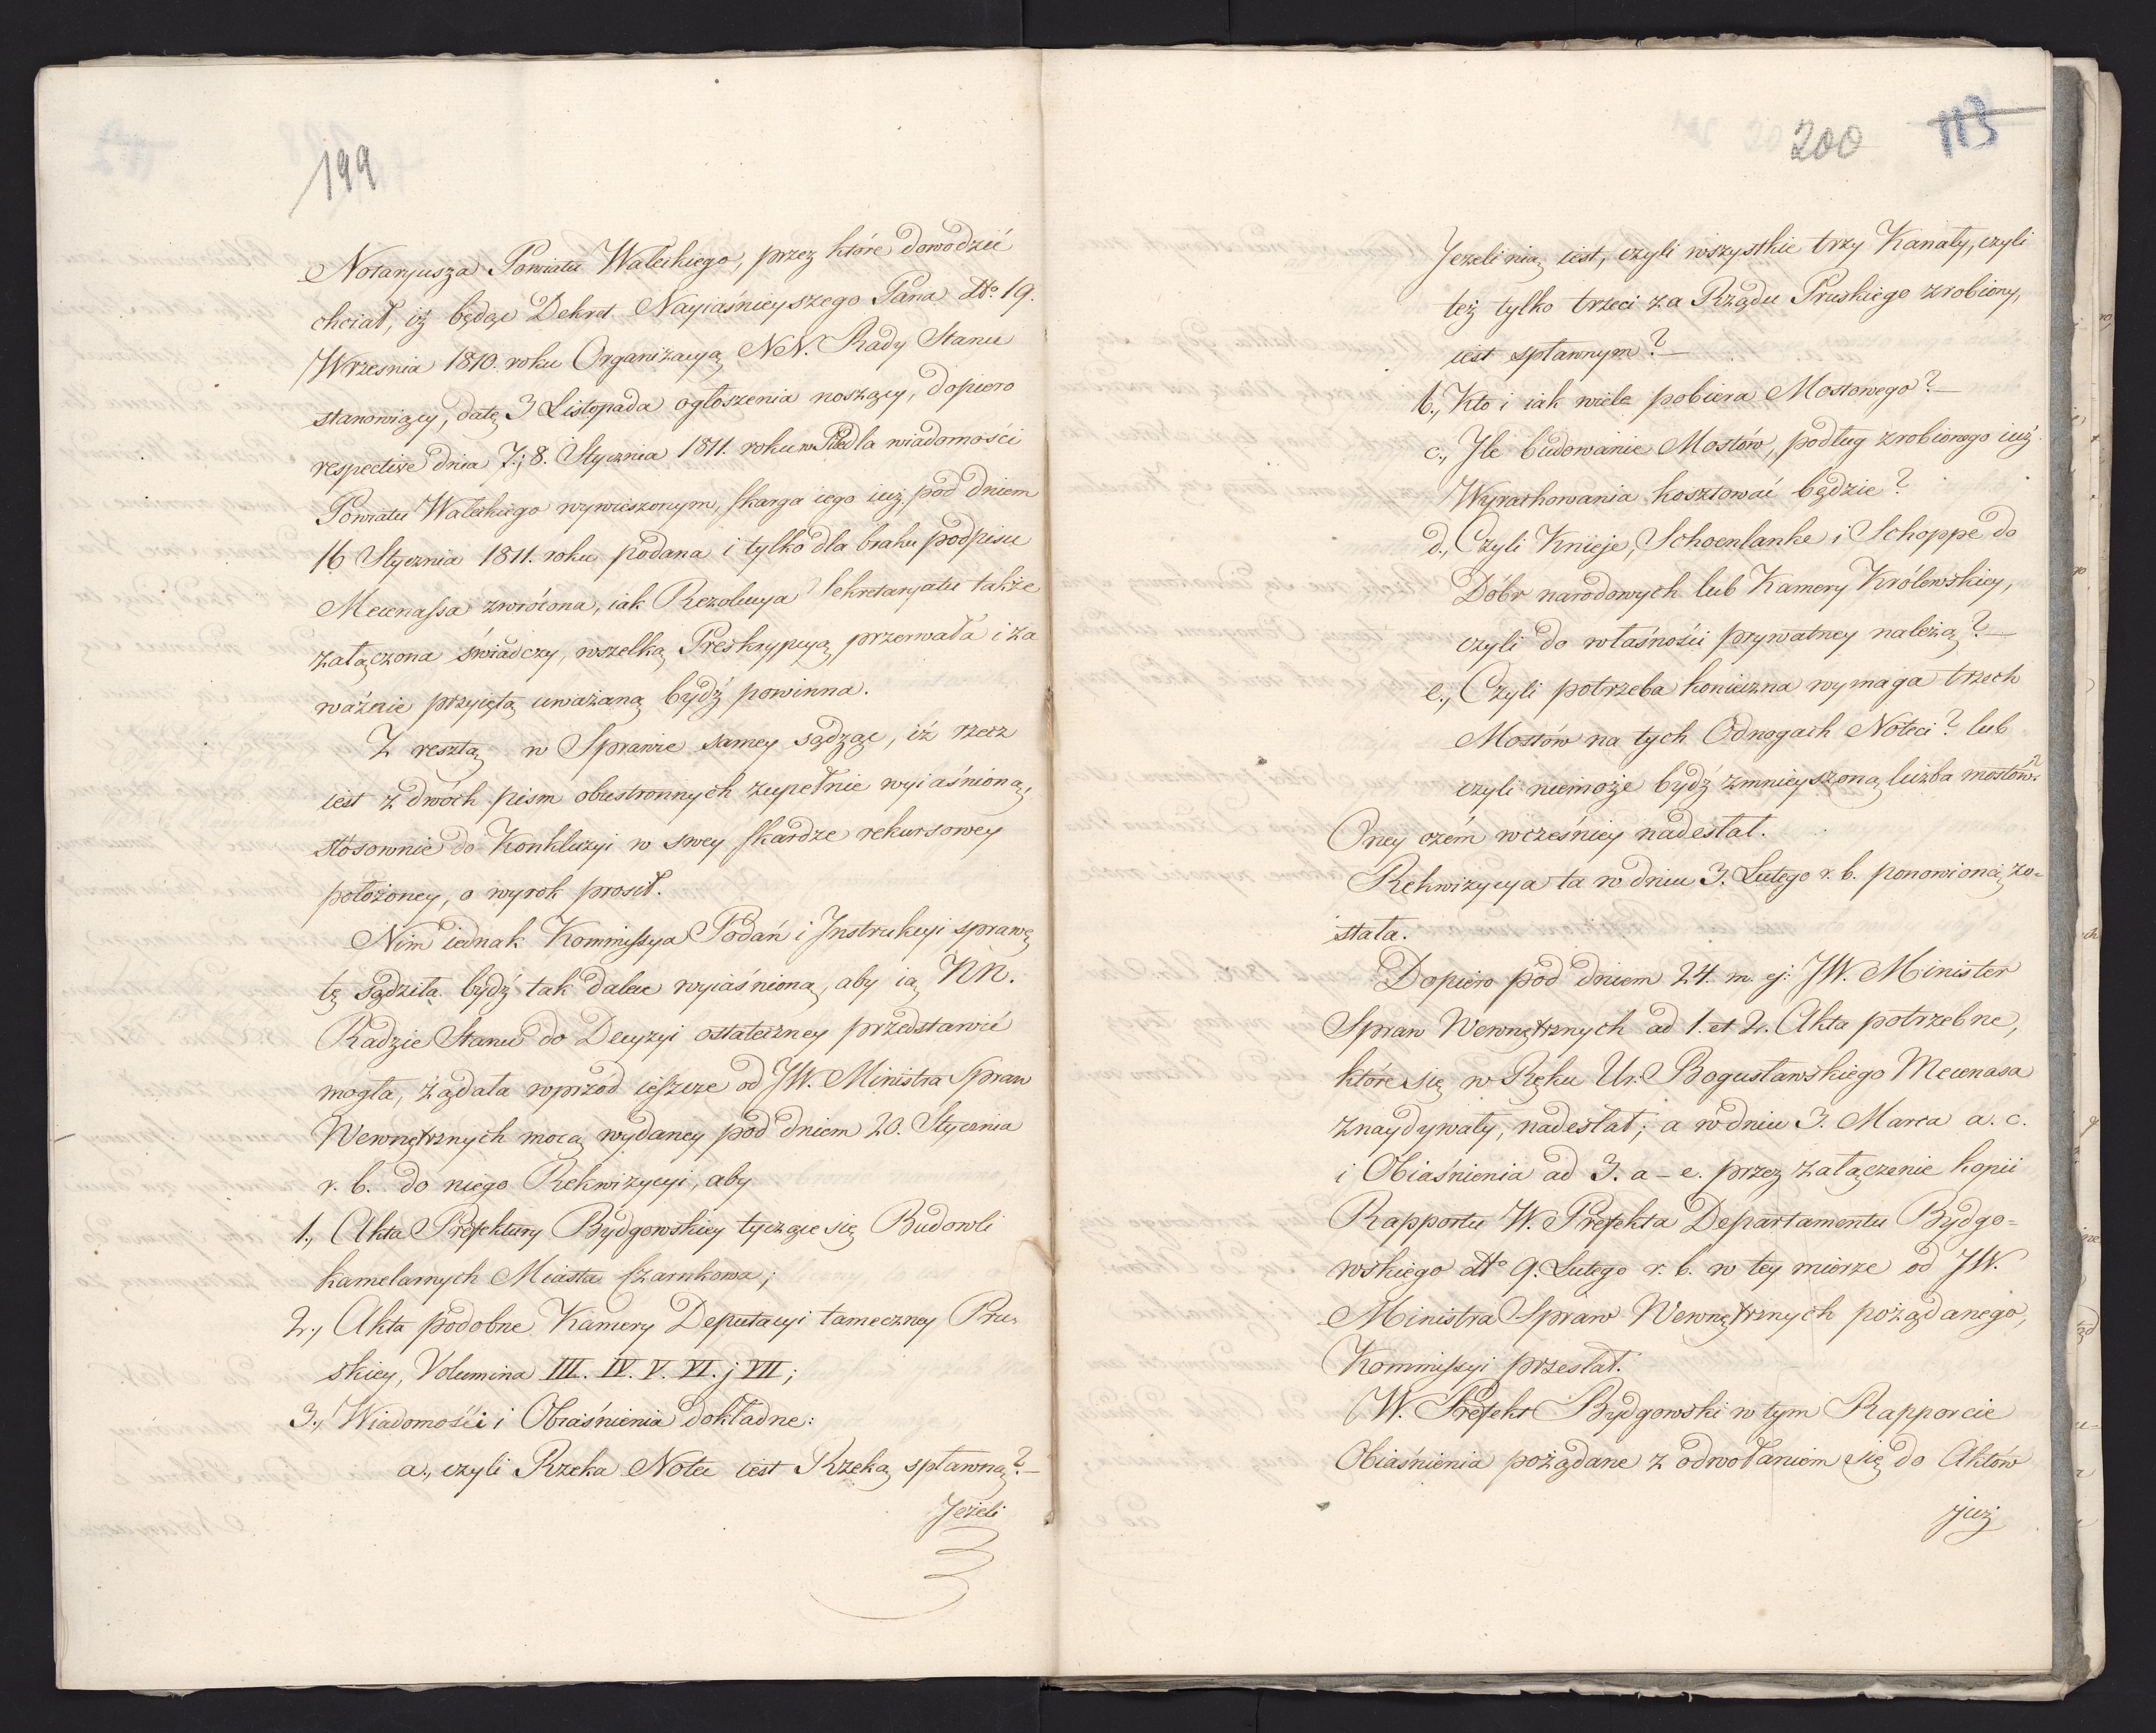 199
Notaryusza Powiatu Waleckiego, przez które dowodzić
chciał, iż będąc Dekret Nayiaśnieyszego Pana dtto 19.
Września 1810. roku Organizacyą NN. Rady Stanu
stanowiący, datę 3 Listopada ogłoszenia noszący, dopiero
respective dnia 7. j 8. Stycznia 1811. roku w dla wiadomości
Powiatu Waleckiego wywieszonym, skarga iego iuż pod dniem
16 Stycznia 1811. roku podana i tylko dla braku podpisu
Mecenassa zwrócona, iak Rezolucya Sekretaryatu także
załączona świadczy, wszelką Preskrypcyą przerwała i za
ważnie przyiętą uważaną bydź powinna.
Z resztą w Sprawie samey sądząc, iż rzecz
iest z dwóch pism obustronnych zupełnie wyiaśnioną,
stosownie do Konkluzyi w swey skardze rekursowey
położoney, o wyrok prosił.
Nim iednak Kommissya Podań i Jnstrukcyi sprawę
tę sądziła bydź tak dalece wyiaśnioną, aby ią NN.
Radzie Stanu do Decyzyi ostateczney przedstawić
mogła, żądała wprzód ieszcze od JW. Ministra Spraw
Wewnętrznych mocą wydaney pod dniem 20. Stycznia
r. b. do niego Rekwizycyi, aby
1., Akta Prefektury Bydgowskiey tyczące się Budowli
kamelarnych Miasta Czarnkowa;
2., Akta podobne Kamery Deputacyi tameczney Pru-
skiey, Volumina III. IV. V. VI. j VII;
3., Wiadomości i Obiaśnienia dokładne:
a., czyli Rzeka Noteć iest Rzeką spławną? –
Jeżeli
200 113
Jeżeli nią iest, czyli wszystkie trzy Kanały, czyli
też tylko trzeci za Rządu Pruskiego zrobiony,
iest spławnym? –
b., Kto i iak wiele pobiera Mostowego? –
c., Jle budowanie Mostów, podług zrobionego iuż
Wyrachowania kosztować będzie?
d., Czyli Knieje, Schoenlanke i Schoppe do
Dóbr narodowych lub Kamery Królewskiey,
czyli do własności prywatney należą? –
e., Czyli potrzeba konieczna wymaga trzech
Mostów na tych Odnogach Noteci? lub
czyli niemoże bydź zmnieyszoną liczba mostów?
Oney czém wcześniey nadesłał.
Rekwizycya ta w dniu 3. Lutego r. b. ponowioną zo=
stała.
Dopiero pod dniem 24. m. ej: JW. Minister
Spraw Wewnętrznych ad 1. et 2. Akta potrzebne,
które się w Ręku Ur. Bogusławskiego Mecenasa
znaydywały, nadesłał; a w dniu 3. Marca a. c.
i Obiaśnienia ad 3. a – e. przez załączenie kopii
Rapportu W. Prefekta Departamentu Bydgo=
wskiego dtto 9. Lutego r. b. w tey mierze od JW.
Ministra Spraw Wewnętrznych pożądanego,
Kommissyi przesłał.
W. Prefekt Bydgowski w tym Rapporcie
Obiaśnienia pożądane z odwołaniem się do Aktów
już